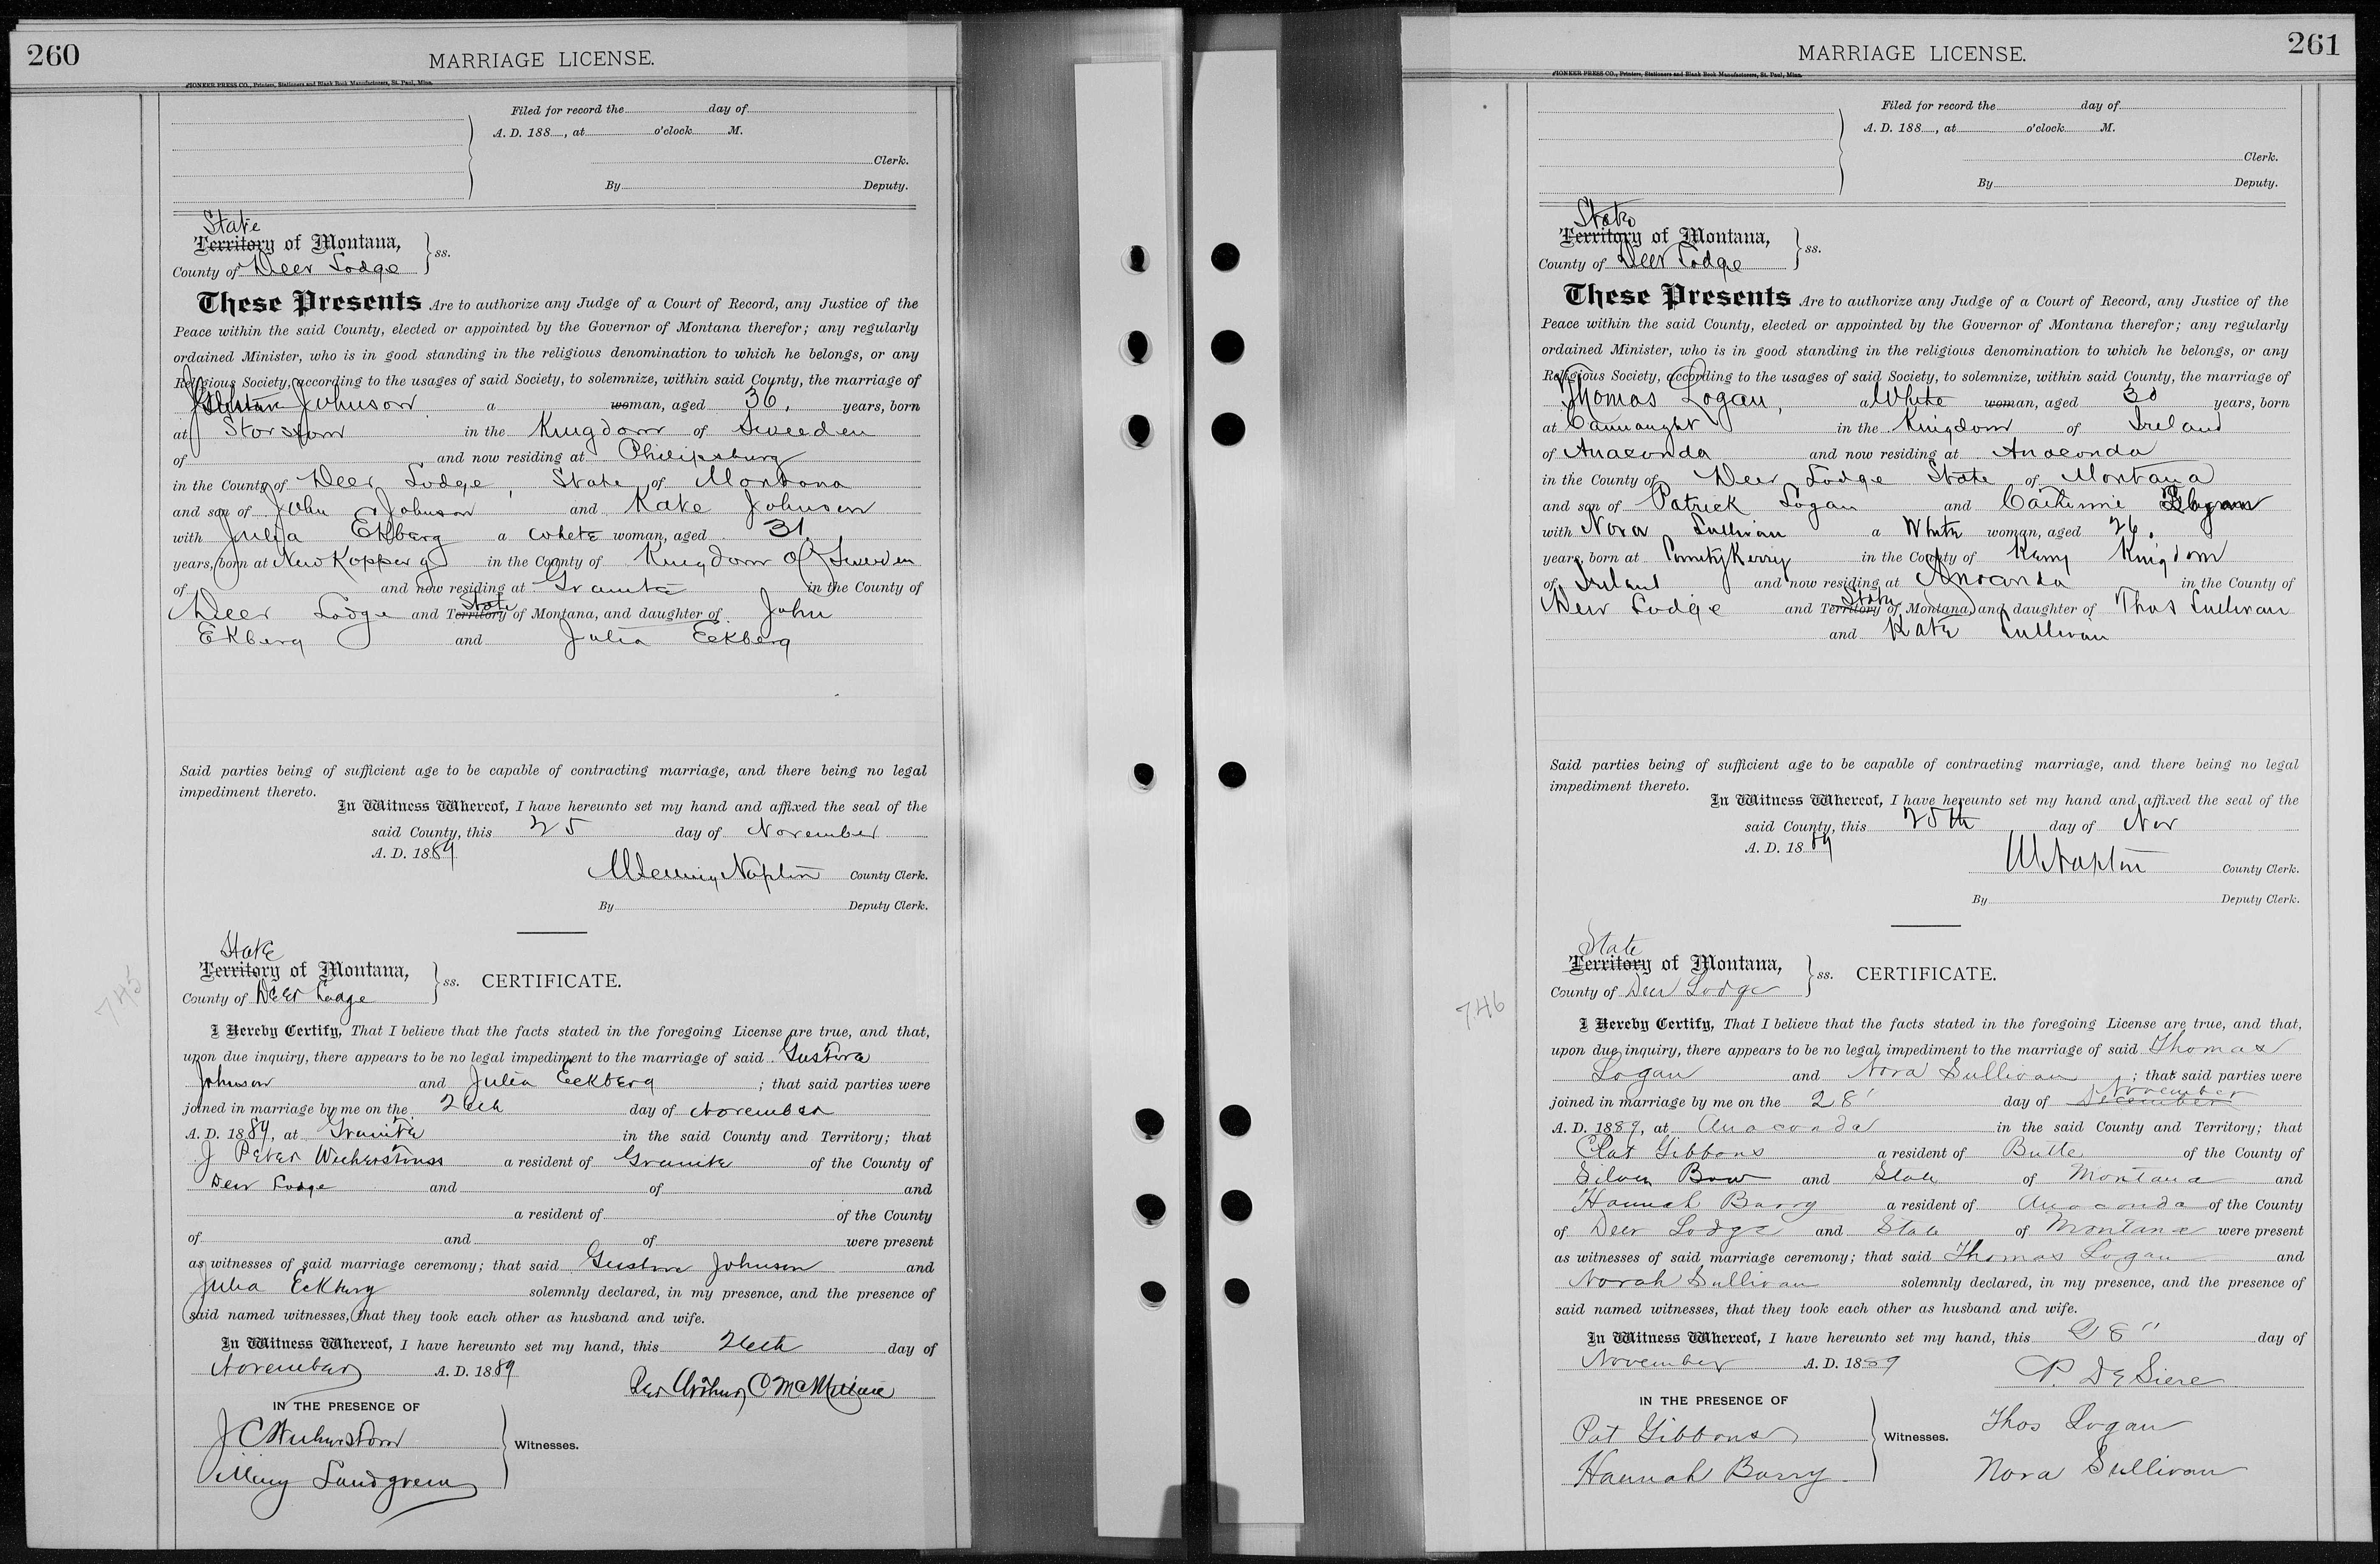 260
MARRIAGE LICENSE.
PIONEER PRESS CO., Printers, Stationers and Blank Book Manufacturers, St. Paul, Minn.
Filed for record the day of
A. D. 188 , at o'clock M.
Clerk.
By Deputy.
State
Territory of Montana,
County of Deer Lodge ss.
These Presents Are to authorize any Judge of a Court of Record, any Justice of the
Peace within the said County, elected or appointed by the Governor of Montana therefor; any regularly
ordained Minister, who is in good standing in the religious denomination to which he belongs, or any
Religious Society, according to the usages of said Society, to solemnize, within said County, the marriage of
Johnson a woman, aged 36, years, born
at in the Kingdom of Sweeden
of and now residing at Philipsburg
in the County of Deer Lodge, State of Montana
and son of John Johnson and Kate Johnson
with Julia Ekberg a white woman, aged 31
years, born at New Kopperg in the County of Kingdom of Sweden
of and now residing at Granite in the County of
Deer Lodge and Territory State of Montana, and daughter of John
Ekberg and Julia Eekberg
Said parties being of sufficient age to be capable of contracting marriage, and there being no legal
impediment thereto.
In Witness Whereof, I have hereunto set my hand and affixed the seal of the
said County, this 25 day of November
A. D. 1889
Napton County Clerk.
By Deputy Clerk.
State
Territory of Montana,
County of Deer Lodge ss. CERTIFICATE.
745
I Hereby Certify, That I believe that the facts stated in the foregoing License are true, and that,
upon due inquiry, there appears to be no legal impediment to the marriage of said Gustave
Johnson and Julia Eekberg ; that said parties were
joined in marriage by me on the 26th day of November
A. D. 1889, at Granite in the said County and Territory; that
J Peter a resident of Granite of the County of
Deer Lodge and of and
a resident of of the County
of and of were present
as witnesses of said marriage ceremony; that said Gustave Johnson and
Julia Eekberg solemnly declared, in my presence, and the presence of
said named witnesses, that they took each other as husband and wife.
In Witness Whereof, I have hereunto set my hand, this 26th day of
November A. D. 1889
Rev Arthur C McMillan
IN THE PRESENCE OF
J C
Witnesses.
Lundgren
261
MARRIAGE LICENSE.
PIONEER PRESS CO., Printers, Stationers and Blank Book Manufacturers, St. Paul, Minn.
Filed for record the day of
A. D. 188 , at o'clock M.
Clerk.
By Deputy.
State
Territory of Montana,
County of Deer Lodge ss.
These Presents Are to authorize any Judge of a Court of Record, any Justice of the
Peace within the said County, elected or appointed by the Governor of Montana therefor; any regularly
ordained Minister, who is in good standing in the religious denomination to which he belongs, or any
Religious Society, according to the usages of said Society, to solemnize, within said County, the marriage of
Thomas Logan, a White woman, aged 30 years, born
at Cannaught in the Kingdom of Ireland
of Anaconda and now residing at Anaconda
in the County of Deer Lodge State of Montana
and son of Patrick Logan and Catherine
with Nora Sullivan a White woman, aged 26.
years, born at County Kerry in the County of Kerry Kingdom
of Ireland and now residing at Anaconda in the County of
Deer Lodge and Territory State of Montana, and daughter of Thos Sullivan
and Kate Sullivan
Said parties being of sufficient age to be capable of contracting marriage, and there being no legal
impediment thereto.
In Witness Whereof, I have hereunto set my hand and affixed the seal of the
said County, this 25th day of Nov
A. D. 1889
Napton County Clerk.
By Deputy Clerk.
State
Territory of Montana,
County of Deer Lodge ss. CERTIFICATE.
746
I Hereby Certify, That I believe that the facts stated in the foregoing License are true, and that,
upon due inquiry, there appears to be no legal impediment to the marriage of said Thomas
Logan and Nora Sullivan ; that said parties were
joined in marriage by me on the 28' day of December November
A. D. 1889, at Anaconda in the said County and Territory; that
Pat Gibbons a resident of Butte of the County of
Silver Bow and State of Montana and
Hannah Barry a resident of Anaconda of the County
of Deer Lodge and State of Montana were present
as witnesses of said marriage ceremony; that said Thomas Logan and
Norah Sullivan solemnly declared, in my presence, and the presence of
said named witnesses, that they took each other as husband and wife.
In Witness Whereof, I have hereunto set my hand, this 28" day of
November A. D. 1889
P. DeSiere
IN THE PRESENCE OF
Pat Gibbons Thos Logan
Witnesses.
Hannah Barry Nora Sullivan